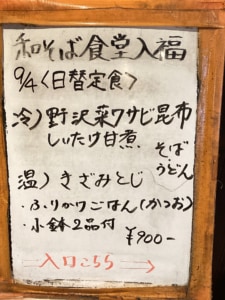 和そば食堂入福
9/4〈日替定食〉
冷）野沢菜ワサビ昆布
しいたけ甘煮
そば
うどん
温）きざみとじ
・ふりかけごはん（かつお）
・小鉢2品付
¥900-
入口こちら→